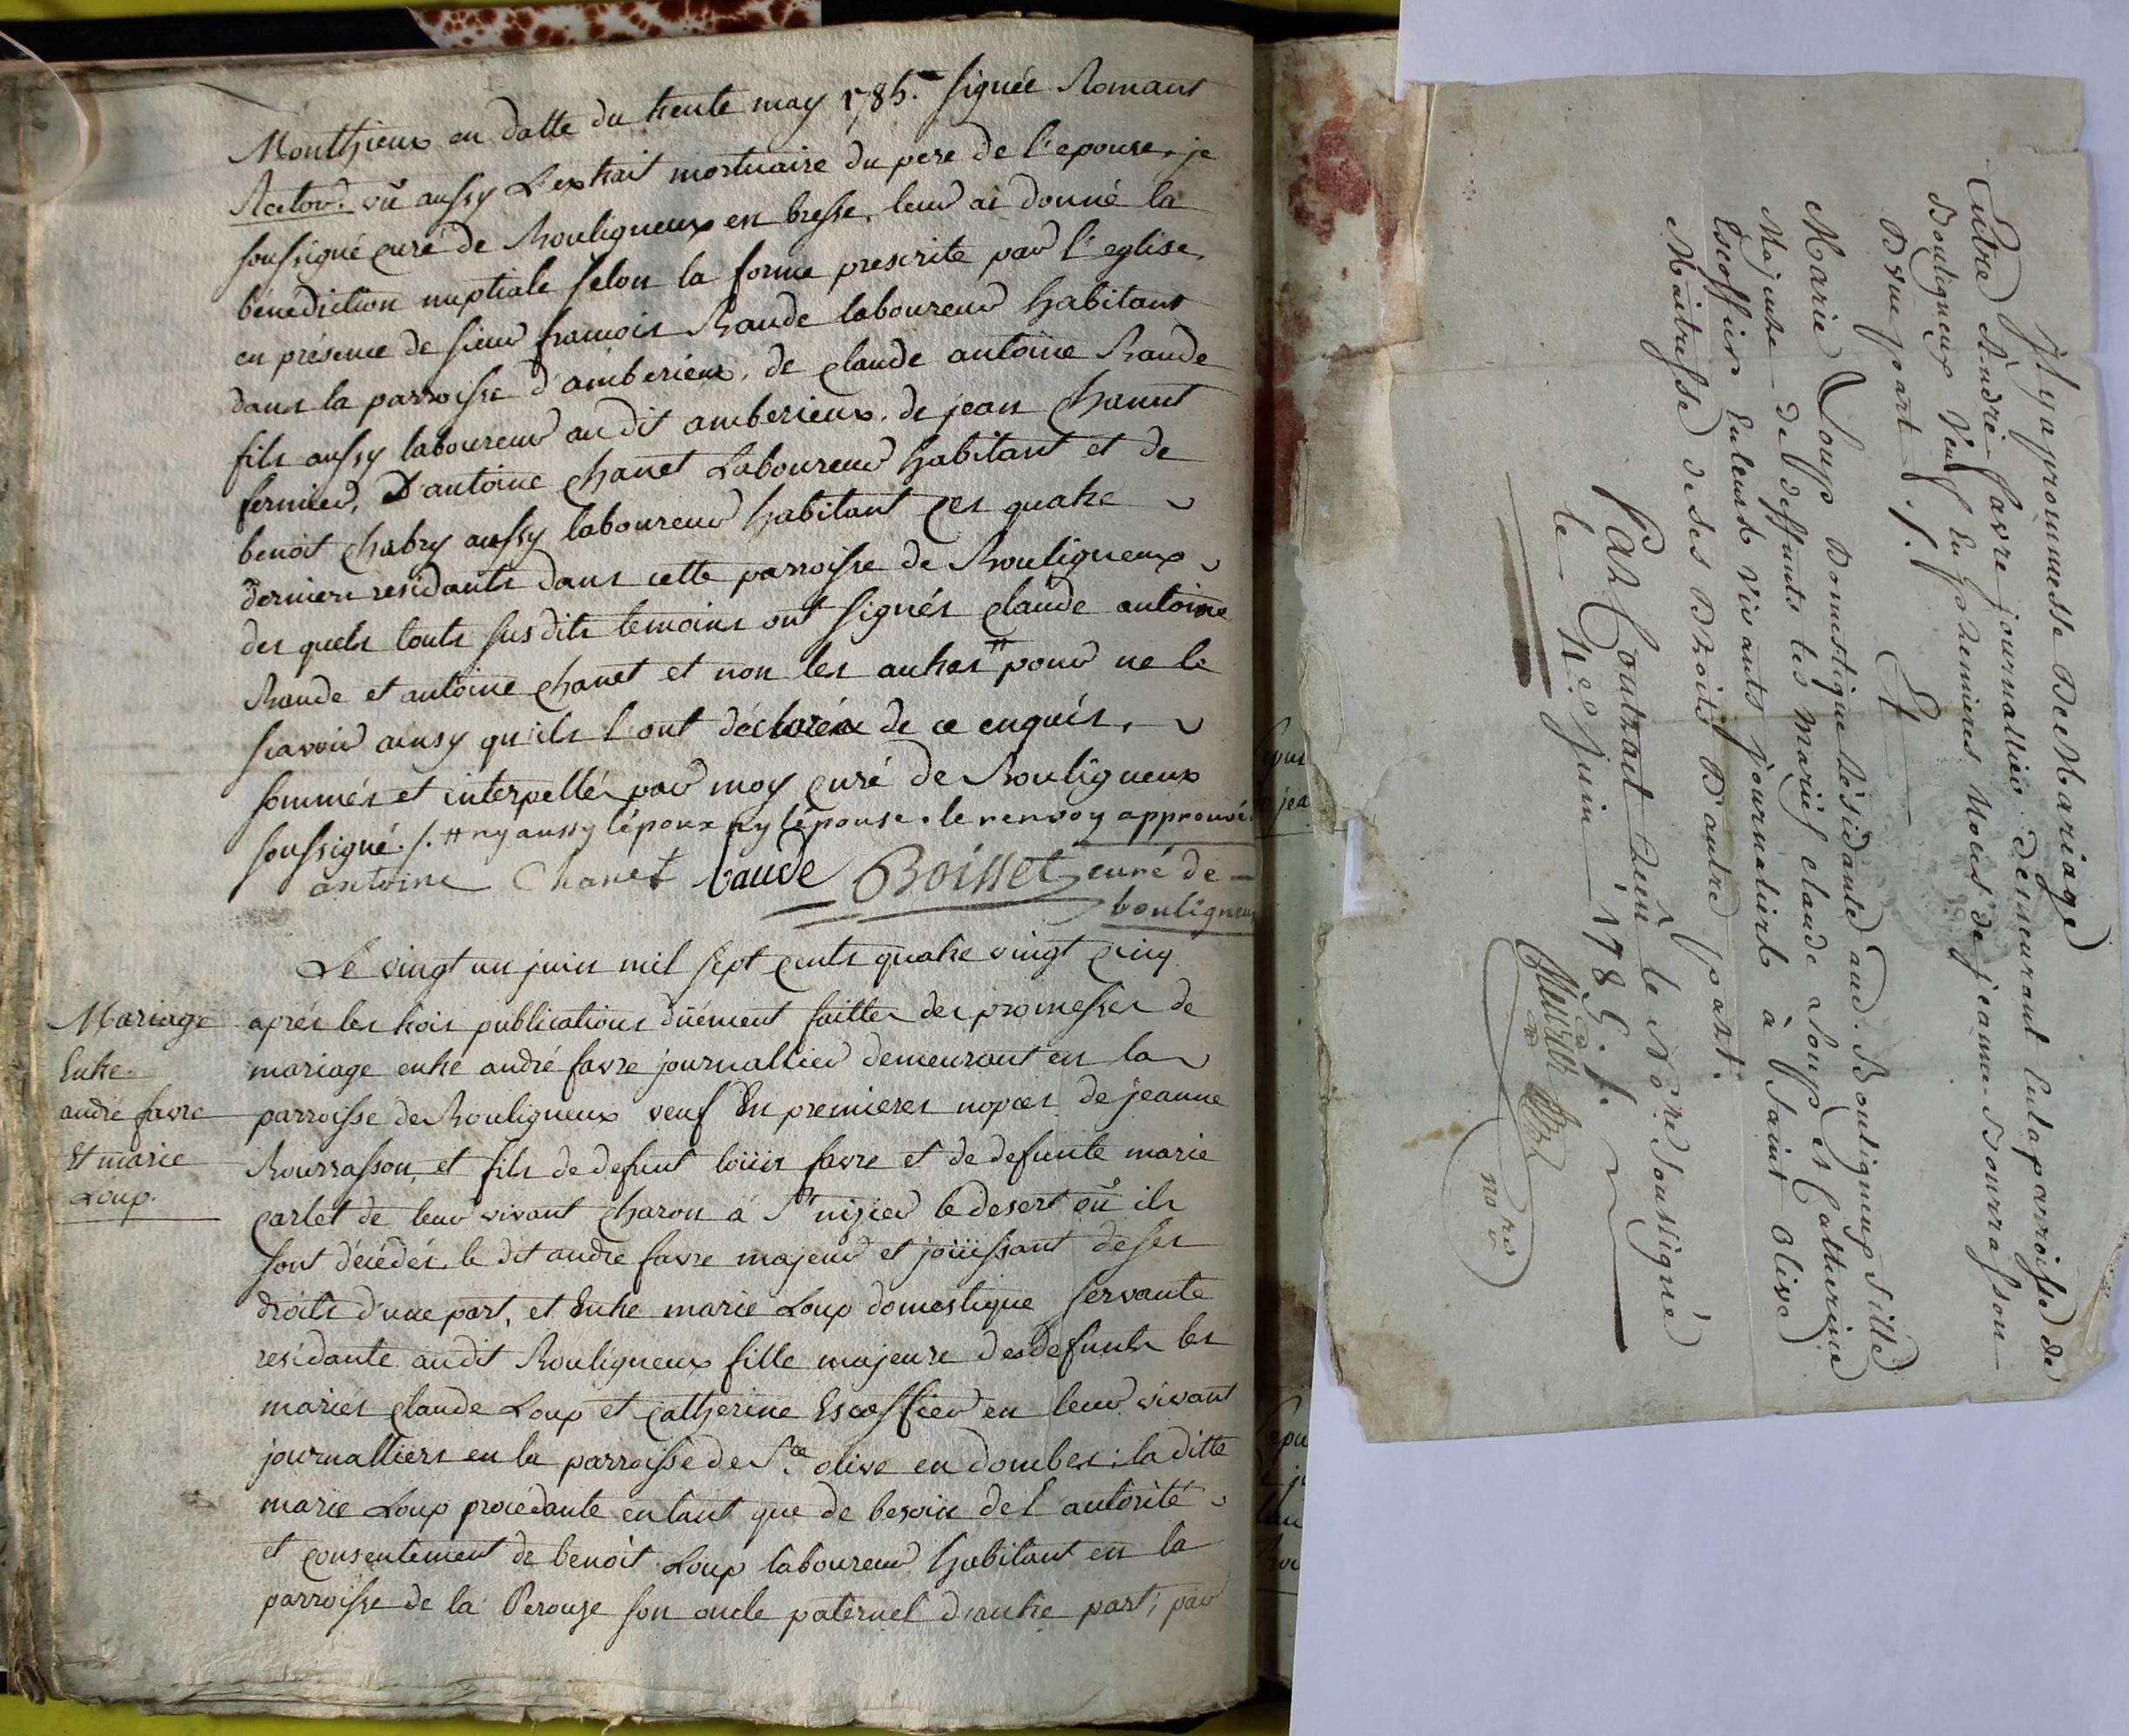 Monthieux en datte du trente may 1785. signée Romans
Rector. vû aussy L'extrait mortuaire du pere de l'epouse, je
soussigné curé de Bouligneux en bresse, leur ai donné la
bénédiction nuptiale selon la forme prescrite par l'eglise,
en présence de sieur francois Baude laboureur habitant
dans la parroisse d'amberieux, de claude antoine Baude
fils aussy laboureur au dit amberieux. de jean Chanut
fermier, D'antoine chanet Laboureur habitant et de
benoit chabry aussy laboureur habitant ces quatre
derniers residants dans cette parroisse de Bouligneux
des quels touts susdits temoins ont signés claude antoine
Baude et antoine chanet et non les autres # pour ne le
scavoir ainsy qu'ils l'ont déclaréa de ce enquis,
sommés et interpellés par moy curé de Bouligneux
soussigné ./. # ny aussy l'époux ny l'épouse. le renvoy approuvé.
antoine Chanet baude Boisset curé de
bouligneux
Le vingt un juin mil sept cents quatre vingt cinq
Mariage
Entre
andré favre
Et marie
Loup.
aprés les trois publications düément faittes des promesses de
mariage entre andré favre journallier demeurant en la
parroisse de Bouligneux veuf En premieres nopces de jeanne
Bourrasson, et fils de defunt loüis favre et de defunte marie
carlet de leur vivant charon à St nizier le desert où ils
sont décédés, le dit andre favre majeur et joüissant de ses
droits d'une part, et Entre marie Loup domestique servante
residante audit Bouligneux fille majeure des defunts les
mariés claude Loup et catherine Escoffier en leur vivant
journalliers en la parroisse de Ste olive en dombes; la ditte
marie Loup procédante en tant que de besoin de l'autorité
et consentement de benoît Loup laboureur habitant en la
parroisse de la Perouze son oncle paternel d'autre part; par
Il y a promesse De Mariage
Entre André favre journallier demeurant En la parroisse de
Bouligneux Veuf En premieres Noces de jeanne Bourrasson
D'une part ./.
Et
Marie Loup Domestique Résidante aud. Bouligneux fille
Majeure de deffunts les Mariés claude Loup et Catherine
Escoffier En leurs Vivants journaliers à Saint Olive
Maitresse de ses Droits D'autre part.
Par Contract Reçu le No.re soussigné
le juin 1785 ./.
no.re